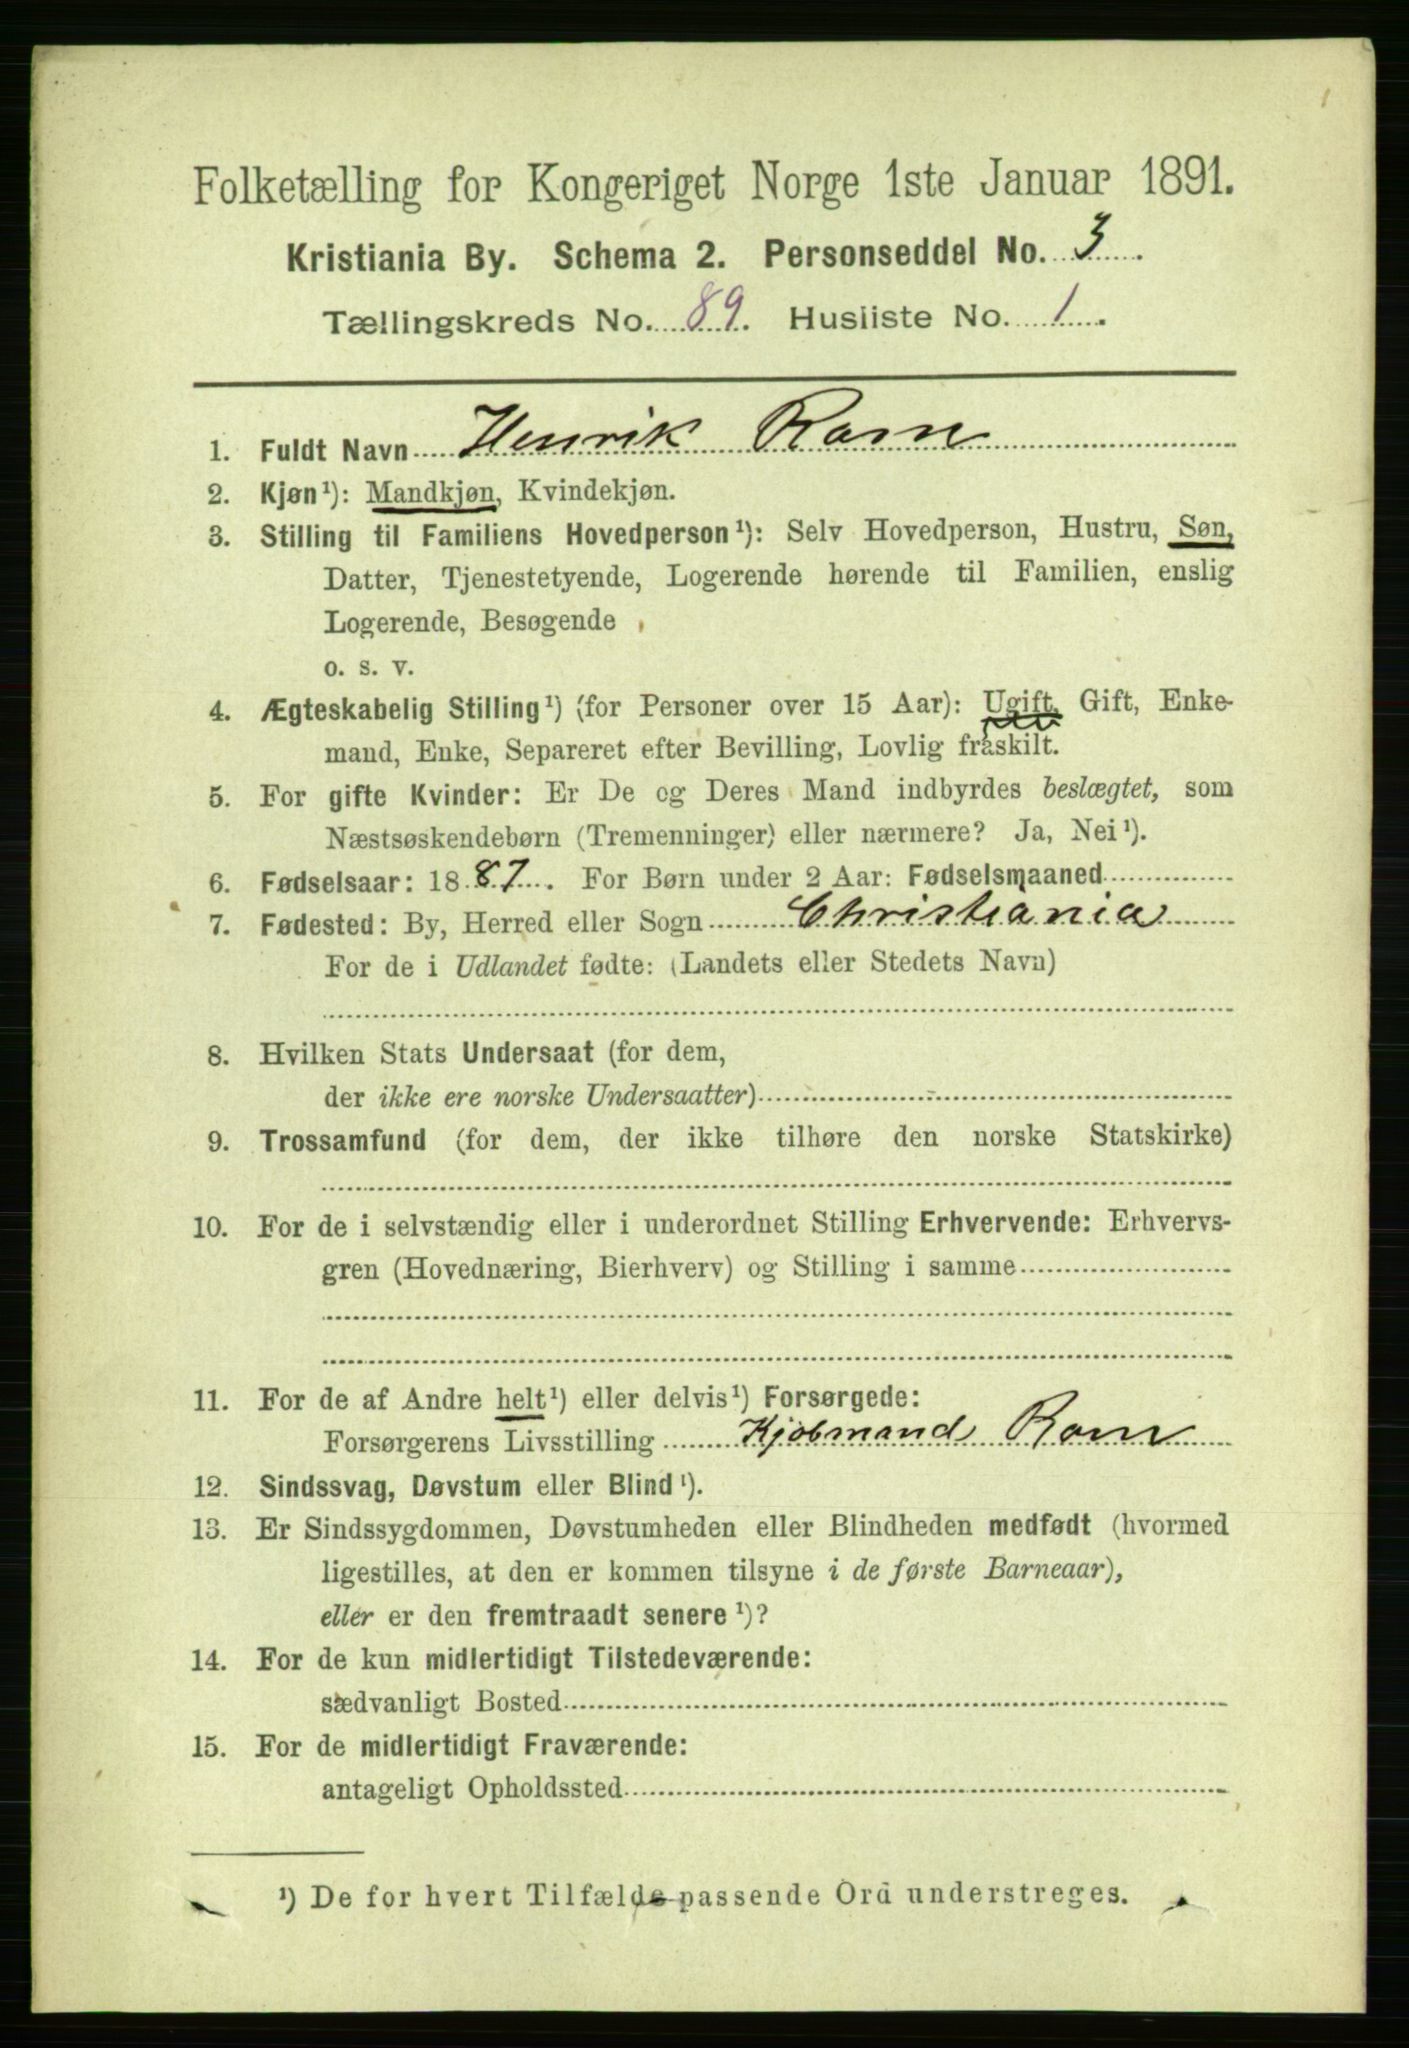 Folketælling for Kongeriget Norge 1ste Januar 1891.
Kristiania By. Schema 2. Personseddel No. 3.
Tællingskreds No. 89. Husliste No. 1.
1. Fuldt Navn Henrik Rom
2. Kjøn¹): Mandkjøn, Kvindekjøn.
3. Stilling til Familiens Hovedperson¹): Selv Hovedperson, Hustru, Søn,
Datter, Tjenestetyende, Logerende hørende til Familien, enslig
Logerende, Besøgende
o. s. v.
4. Ægteskabelig Stilling¹) (for Personer over 15 Aar): Ugift, Gift, Enke-
mand, Enke, Separeret efter Bevilling, Lovlig fraskilt.
5. For gifte Kvinder: Er De og Deres Mand indbyrdes beslægtet, som
Næstsøskendebørn (Tremenninger) eller nærmere? Ja, Nei¹).
6. Fødselsaar: 1887. For Børn under 2 Aar: Fødselsmaaned
7. Fødested: By, Herred eller Sogn Christiania
For de i Udlandet fødte: (Landets eller Stedets Navn)
8. Hvilken Stats Undersaat (for dem,
der ikke ere norske Undersaatter)
9. Trossamfund (for dem, der ikke tilhøre den norske Statskirke)
10. For de i selvstændig eller i underordnet Stilling Erhvervende: Erhvervs-
gren (Hovednæring, Bierhverv) og Stilling i samme
11. For de af Andre helt¹) eller delvis¹) Forsørgede:
Forsørgerens Livsstilling Kjøbmand Rom
12. Sindssvag, Døvstum eller Blind¹).
13. Er Sindssygdommen, Døvstumheden eller Blindheden medfødt (hvormed
ligestilles, at den er kommen tilsyne i de første Barneaar),
eller er den fremtraadt senere¹)?
14. For de kun midlertidigt Tilstedeværende:
sædvanligt Bosted
15. For de midlertidigt Fraværende:
antageligt Opholdssted
¹) De for hvert Tilfælde passende Ord understreges.